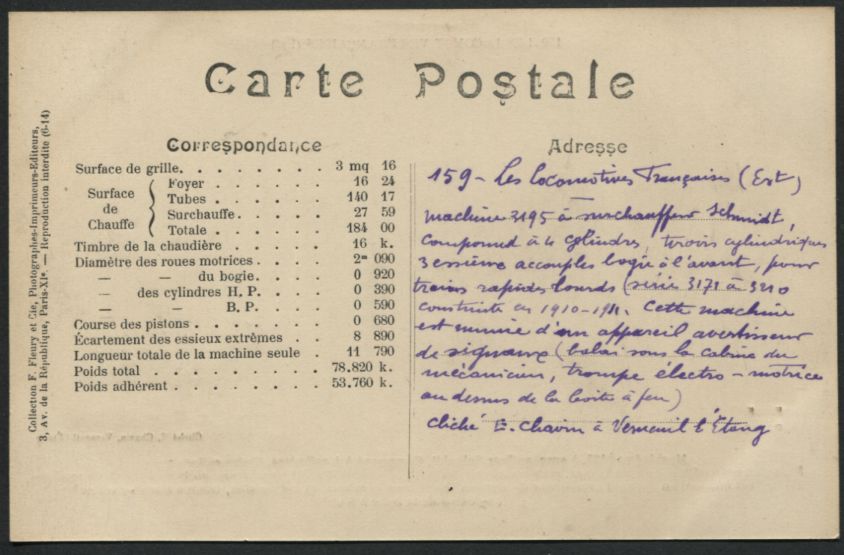 Carte Postale
Collection F. Fleury et Cie, Photographes-Imprimeurs-Editeurs,
3, Av. de la République, Paris-XIe. — Reproduction interdite (6-14)
Correspondance
Surface de grille. . . . . . . . 3 mq 16
Surface de Chauffe { Foyer . . . . . . . 16 24
Tubes . . . . . . . 140 17
Surchauffe. . . . . 27 59
Totale . . . . . . . 184 00
Timbre de la chaudière . . . . . . 16 k.
Diamètre des roues motrices. . . . 2m 090
— — du bogie. . . . 0 920
— des cylindres H. P. . . . 0 390
— — B. P. . . . 0 590
Course des pistons . . . . . . . 0 680
Écartement des essieux extrêmes . . 8 890
Longueur totale de la machine seule . 11 790
Poids total . . . . . . . . . 78.820 k.
Poids adhérent . . . . . . . . 53.760 k.
Adresse
159 - Les locomotives Françaises (Est)
machine 3195 à surchauffeur Schmidt,
compound à 4 cylindres, tiroirs cylindriques
3 essieux accouplés bogie à l'avant, pour
trains rapides lourds (série 3171 à 3210
construite en 1910-1911. Cette machine
est munie d'un appareil avertisseur
de signaux (balai sous la cabine du
mécanicien, trompe électro-motrice
au dessus de la boite à feu)
cliché E. Chavin à Verneuil l'Étang